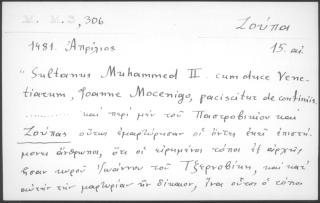 M. M. 3, 306
Ζούπα
1481. Ἀπρίλιος
15. αἰ.
"Sultanus Muhammed II. cum duce Vene-
tiarum, Joanne Mocenigo, paciscitur de confiniis.
............ καὶ περὶ μὲν τοῦ Παστροβικίου καὶ
Ζούπας οὕτως ἐμαρτύρησαν οἱ ὄντες ἐκεῖ ἐπιστή-
μονες ἄνθρωποι, ὅτι οἱ εἰρημένοι τόποι ἐξ ἀρχῆς
ἦσαν κυροῦ Ἰωάννου τοῦ Τζερνοβίκη, καὶ κατ'
αὐτὴν τὴν μαρτυρίαν ἦν δίκαιον, ἵνα οὗτοι οἱ τόποι